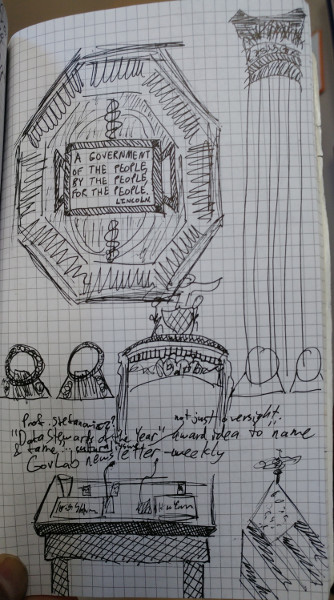 A GOVERNMENT
OF THE PEOPLE,
BY THE PEOPLE,
FOR THE PEOPLE.
LINCOLN
Prof. not just oversight.
"Data Stewards of the Year" award idea to "name
& fame"
GovLab newsletter-weekly